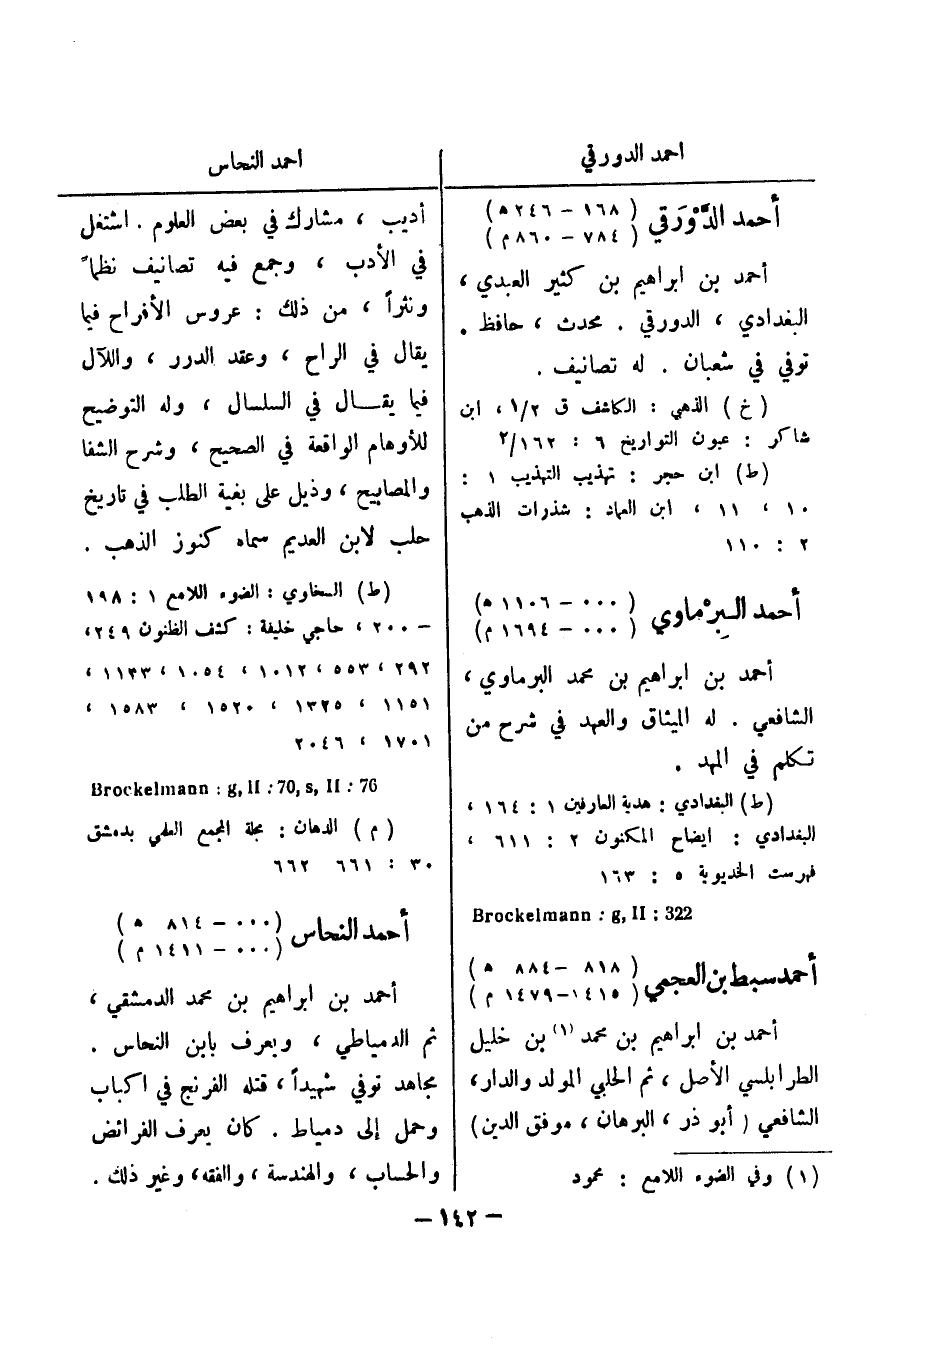 احمد الدورقي
أحمد الدَّوْرَقي ( ١٦٨ - ٢٤٦ ه )
( ٧٨٤ - ٨٦٠ م )
أحمد بن ابراهيم بن كثير العبدي ،
البغدادي ، الدورقي . محدث ، حافظ .
توفي في شعبان . له تصانيف .
( خ ) الذهبي : الكاشف ق ١/٢ ، ابن
شاكر : عيون التواريخ ٦ : ٢/١٦٢
(ط) ابن حجر : تهذيب التهذيب ١ :
١٠ ، ١١ ، ابن العماد : شذرات الذهب
٢ : ١١٠
أحمد البِرْماوي ( ٠٠٠ - ١١٠٦ ه )
( ٠٠٠ - ١٦٩٤ م )
أحمد بن ابراهيم بن محمد البرماوي ،
الشافعي . له الميثاق والعهد في شرح من
تكلم في المهد .
(ط) البغدادي : هدية العارفين ١ : ١٦٤ ،
البغدادي : ايضاح المكنون ٢ : ٦١١ ،
فهرست الخديوية ٥ : ١٦٣
Brockelmann : g, II : 322
أحمد سبط بن العجمي ( ٨١٨ - ٨٨٤ ه )
( ١٤١٥ - ١٤٧٩ م )
أحمد بن ابراهيم بن محمد (١) بن خليل
الطرابلسي الأصل ، ثم الحلبي المولد والدار ،
الشافعي ( أبو ذر ، البرهان ، موفق الدين )
(١) وفي الضوء اللامع : محمود
احمد النحاس
أديب ، مشارك في بعض العلوم . اشتغل
في الأدب ، وجمع فيه تصانيف نظماً
ونثراً ، من ذلك : عروس الأفراح فيما
يقال في الراح ، وعقد الدرر ، واللآل
فيما يقال في السلسال ، وله التوضيح
للأوهام الواقعة في الصحيح ، وشرح الشفا
والمصابيح ، وذيل على بغية الطلب في تاريخ
حلب لابن العديم سماه كنوز الذهب .
(ط) السخاوي : الضوء اللامع ١ : ١٩٨
- ٢٠٠ ، حاجي خليفة : كشف الظنون ٢٤٩ ،
٢٩٢ ، ٥٥٣ ، ١٠١٢ ، ١٠٥٤ ، ١١٣٣ ،
١١٥١ ، ١٣٢٥ ، ١٥٢٠ ، ١٥٨٣ ،
١٧٠١ ، ٢٠٤٦
Brockelmann : g, II : 70, s, II : 76
( م ) الدهان : مجلة المجمع العلمي بدمشق
٣٠ : ٦٦١ ٦٦٢
أحمد النحاس ( ٠٠٠ - ٨١٤ ه )
( ٠٠٠ - ١٤١١ م )
احمد بن ابراهيم بن محمد الدمشقي ،
ثم الدمياطي ، ويعرف بابن النحاس .
مجاهد توفي شهيداً ، قتله الفرنج في اكباب
وحمل إلى دمياط . كان يعرف الفرائض
والحساب ، والهندسة ، والفقه ، وغير ذلك .
- ١٤٢ -